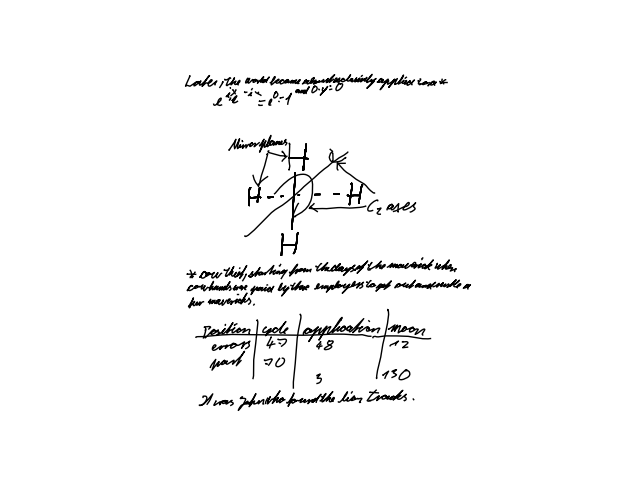 Later, the word became almost exclusively applied to a *
e^{ix}e^{-ix} = e^0 = 1 and 0 · y = 0
Mirror planes
H
H H
C2 axes
H
* cow thief, starting from the days of the maverick when
cowhands were paid by their employers to get out and rustle a
few mavericks.
Position cycle application moon
errors 47 48 12
past 70
3 130
It was John who found the lion tracks.